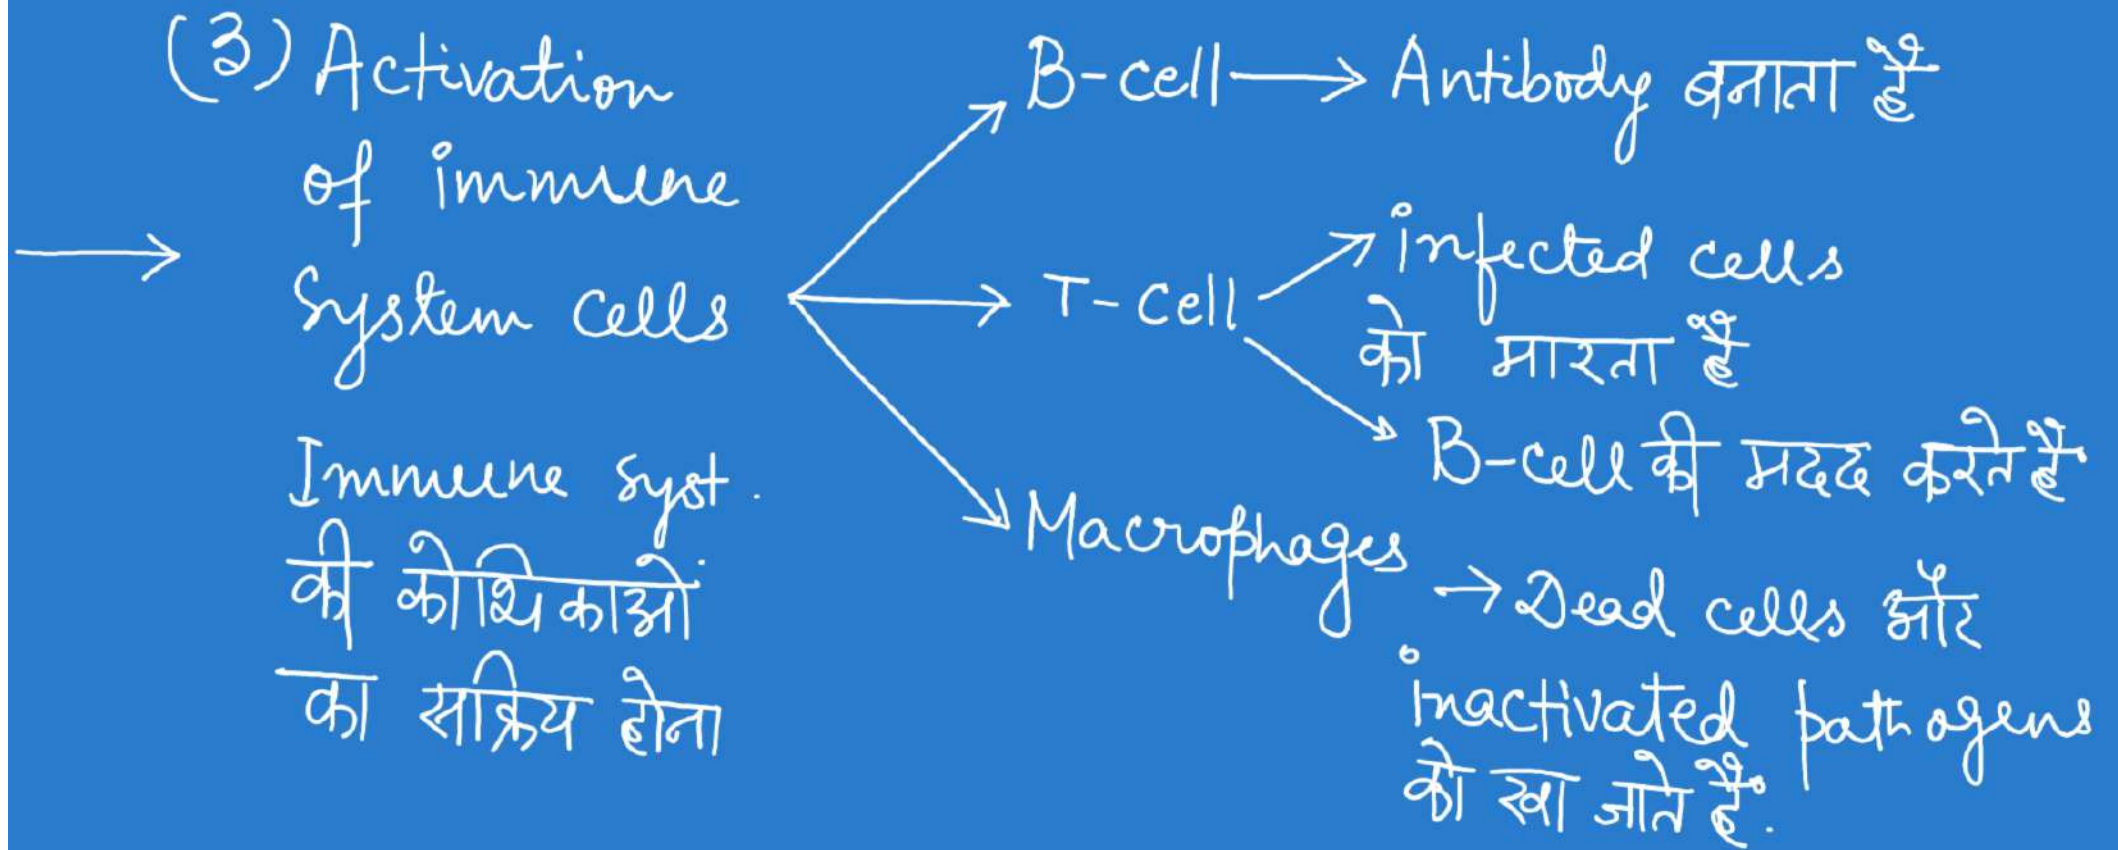 (3) Activation
of immune
System cells
Immune syst.
की कोशिकाओं
का सक्रिय होना
B-cell → Antibody बनाता है
T-cell
infected cells
को मारता है
B-cell की मदद करते है
Macrophages
→ Dead cells और
inactivated pathogens
को खा जाते हैं.